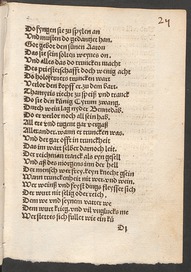 24
Do fyngen sie zu spylen an
Und musten do gedantzet han.
Got gebot den sünen Aaron
Das sie sein soltens weynes on.
Und alles das do truncken macht
Des priesterschafft doch wenig acht
Do holofernes truncken wart
Verlor den kopff er zu dem bart.
Thamyris riecht zu speiß vnd tranck
Do sie den künig Cyrum zwang.
Durch wein lag nyder Bennedab,
Do er verlor noch all sein hab,
All er vnd tugent gar vergaß
Allexander, wann er truncken was.
Und det gar offt in trunckheit
Das im wart selber darnoch leit.
Der reichman tranck als eyn gesell
Und aß des morgens inn der hell
Der mensch wer frey, keyn knecht gesein
Wann trunckenheit nit wer vnd wein.
Wer weinß vnd feyst dings fleysset sich
Der wurt nit selig oder reich.
Dem we vnd seynem vatter we
Dem wurt krieg vnd vil vnglucks me
Wer stetes sich fullet wie ein kü
D1